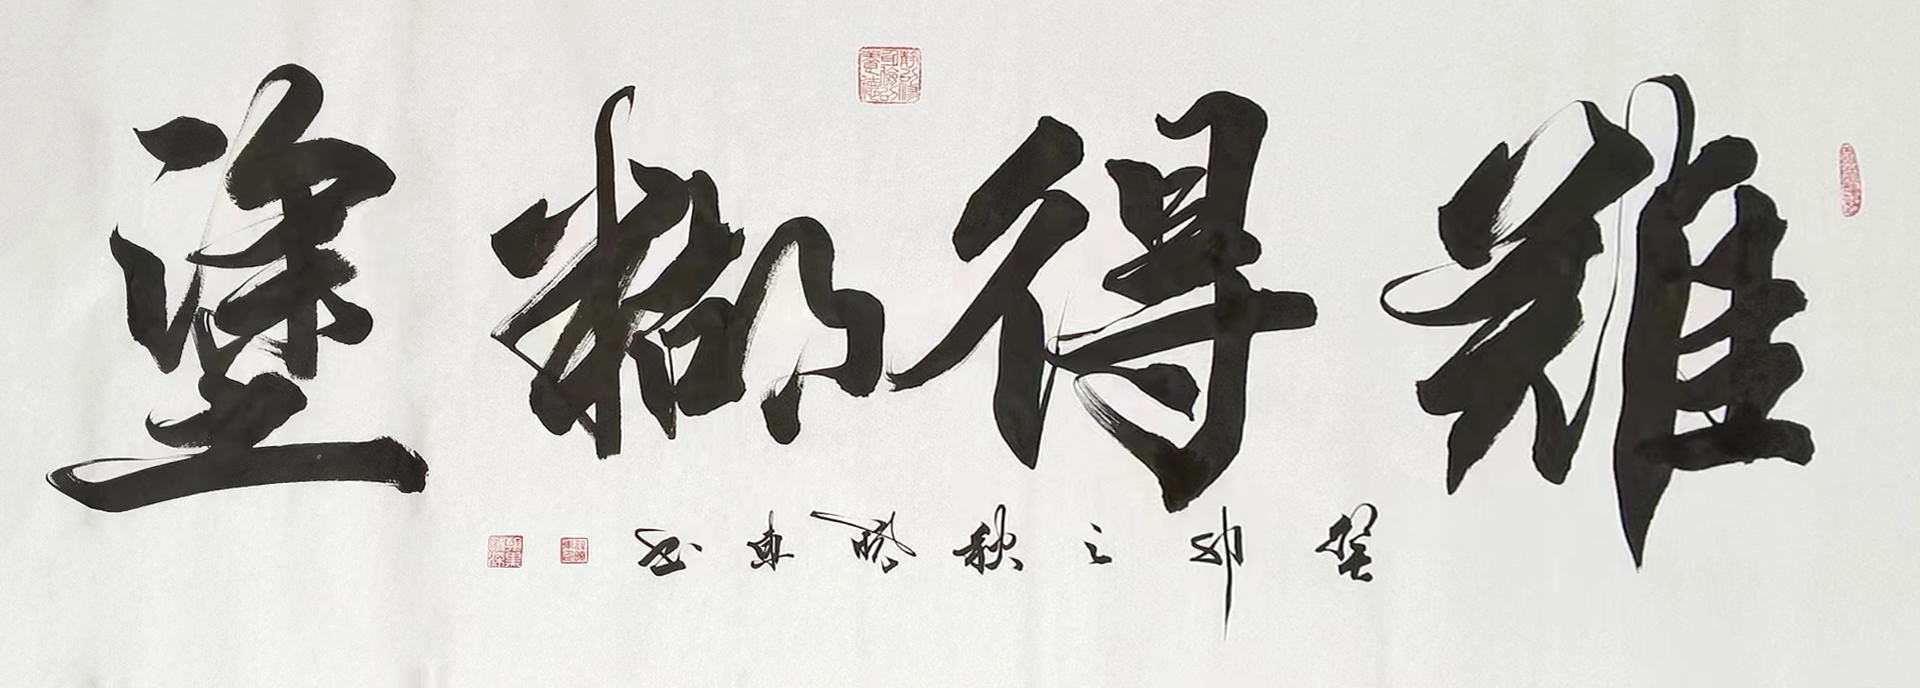 難得糊塗
癸卯之秋曉東書